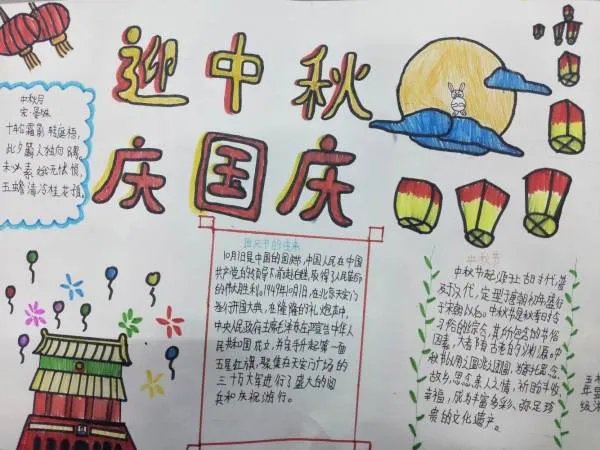 迎中秋
庆国庆
中秋月
宋·晏殊
十轮霜影转庭梧,
此夕羁人独向隅。
未必素娥无怅恨,
玉蟾清冷桂花孤。
国庆节的由来
10月1日是中国的国庆,中国人民在中国
共产党的领导下,前赴后继,取得了人民革命
的伟大胜利。1949年10月1日,在北京天安门
举行开国大典,在隆隆的礼炮声中,
中央人民政府主席毛泽东庄严宣告中华人
民共和国成立,并亲手升起第一面
五星红旗,聚集在天安门广场的
三十万大军进行了盛大的阅
兵和庆祝游行。
中秋节
中秋节起源于上古时代,普
及于汉代,定型于唐朝初年,盛行
于宋朝以后。中秋节是秋季时令
习俗的综合,其所包含的节俗
因素,大都有古老的渊源。中
秋节以月之圆兆人团圆,为寄托思念
故乡,思念亲人之情,祈盼丰收、
幸福,成为丰富多彩、弥足珍
贵的文化遗产。